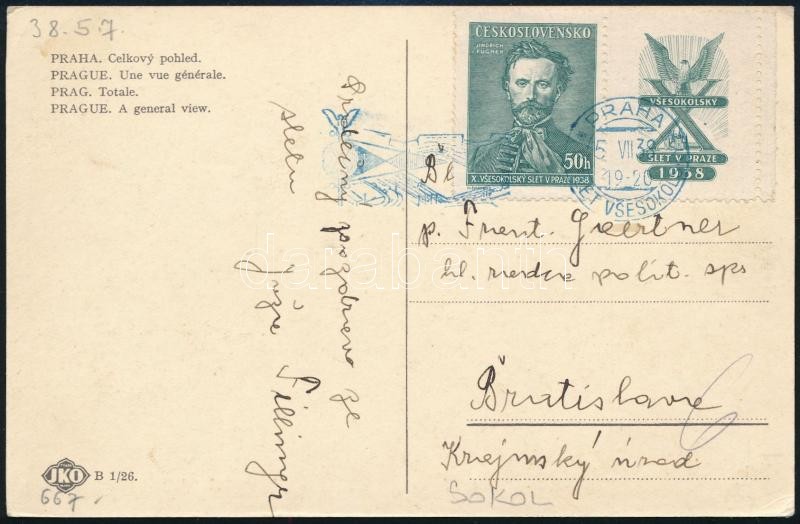 38.5.7.
PRAHA. Celkový pohled.
PRAGUE. Une vue générale.
PRAG. Totale.
PRAGUE. A general view.
ČESKOSLOVENSKO
JINDŘICH FÜGNER
50h
X. VŠESOKOLSKÝ SLET V PRAZE 1938
VŠESOKOLSKÝ
SLET V PRAZE
1938
PRAHA
5 VII 38
19-20
SLET VŠESOKOL
darabanth
Srdečný pozdrav ze
sletu
Jože Fillinger
Bl
p. Frant. Gaertner
hl. radca polit. sps
Bratislava
Krajinský úrad
JKO
B 1/26.
667
SOKOL